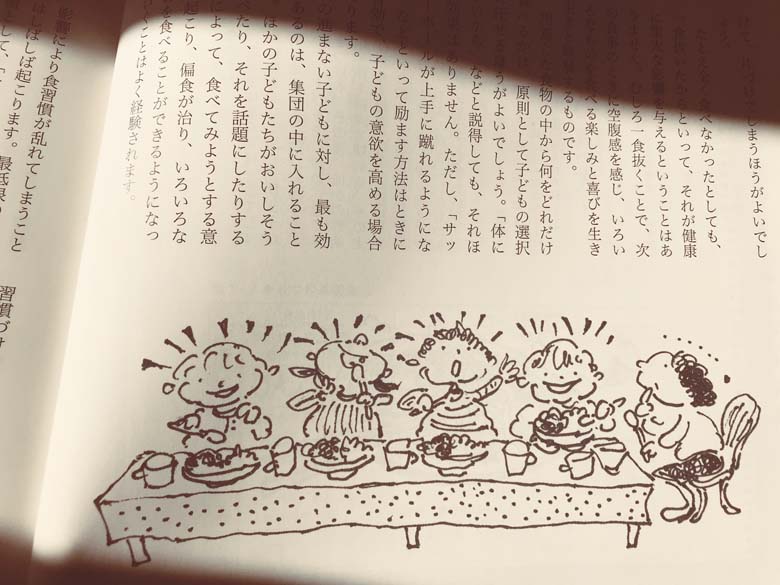 しまうほうがよいでし
食べなかったとしても、
といって、それが健康
を与えるということはあ
しろ一食抜くことで、次
に空腹感を感じ、いろい
べる楽しみと喜びを生き
るものです。
食物の中から何をどれだけ
原則として子どもの選択
うがよいでしょう。「体に
などと説得しても、それほ
ありません。ただし、「サッ
ルが上手に蹴れるようにな
といって励ます方法はときに
、子どもの意欲を高める場合
ます。
進まない子どもに対し、最も効
あるのは、集団の中に入れること
ほかの子どもたちがおいしそう
べたり、それを話題にしたりする
によって、食べてみようとする意
起こり、偏食が治り、いろいろな
を食べることができるようになっ
いくことはよく経験されます。
影響により食習慣が乱れてしまうこと
はしばしば起こります。最低限の
して、「
習慣づけ